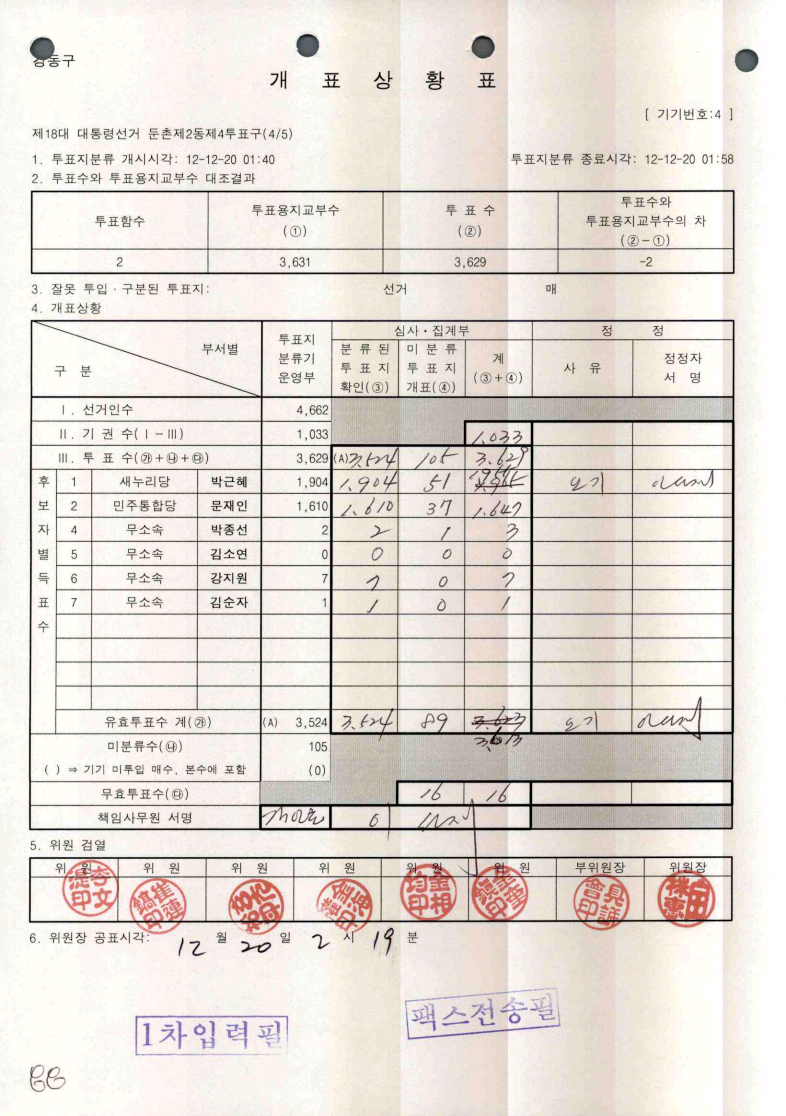 강동구
개 표 상 황 표
[ 기기번호:4 ]
제18대 대통령선거 둔촌제2동제4투표구(4/5)
1. 투표지분류 개시시각: 12-12-20 01:40 투표지분류 종료시각: 12-12-20 01:58
2. 투표수와 투표용지교부수 대조결과
투표함수 투표용지교부수 (①) 투 표 수 (②) 투표수와 투표용지교부수의 차 (②-①)
2 3,631 3,629 -2
3. 잘못 투입·구분된 투표지: 선거 매
4. 개표상황
부서별 구 분 투표지 분류기 운영부 심사·집계부 정 정
분류된 투표지 확인(③) 미분류 투표지 개표(④) 계 (③+④) 사 유 정정자 서 명
Ⅰ. 선거인수 4,662
Ⅱ. 기 권 수(Ⅰ-Ⅲ) 1,033 1,033
Ⅲ. 투 표 수(㉮+㉯+㉰) 3,629 (A) 3,524 105 3,629
후보자별득표수
1 새누리당 박근혜 1,904 1,904 51 오기
2 민주통합당 문재인 1,610 1,610 37 1,647
4 무소속 박종선 2 2 1 3
5 무소속 김소연 0 0 0 0
6 무소속 강지원 7 7 0 7
7 무소속 김순자 1 1 0 1
유효투표수 계(㉮) (A) 3,524 3,524 89 3,613 오기
미분류수(㉯) 105
( ) ⇒ 기기 미투입 매수, 본수에 포함 (0)
무효투표수(㉰) 16 16
책임사무원 서명
5. 위원 검열
위 원 위 원 위 원 위 원 위 원 위 원 부위원장 위원장
6. 위원장 공표시각: 12 월 20 일 2 시 19 분
1차입력필
팩스전송필